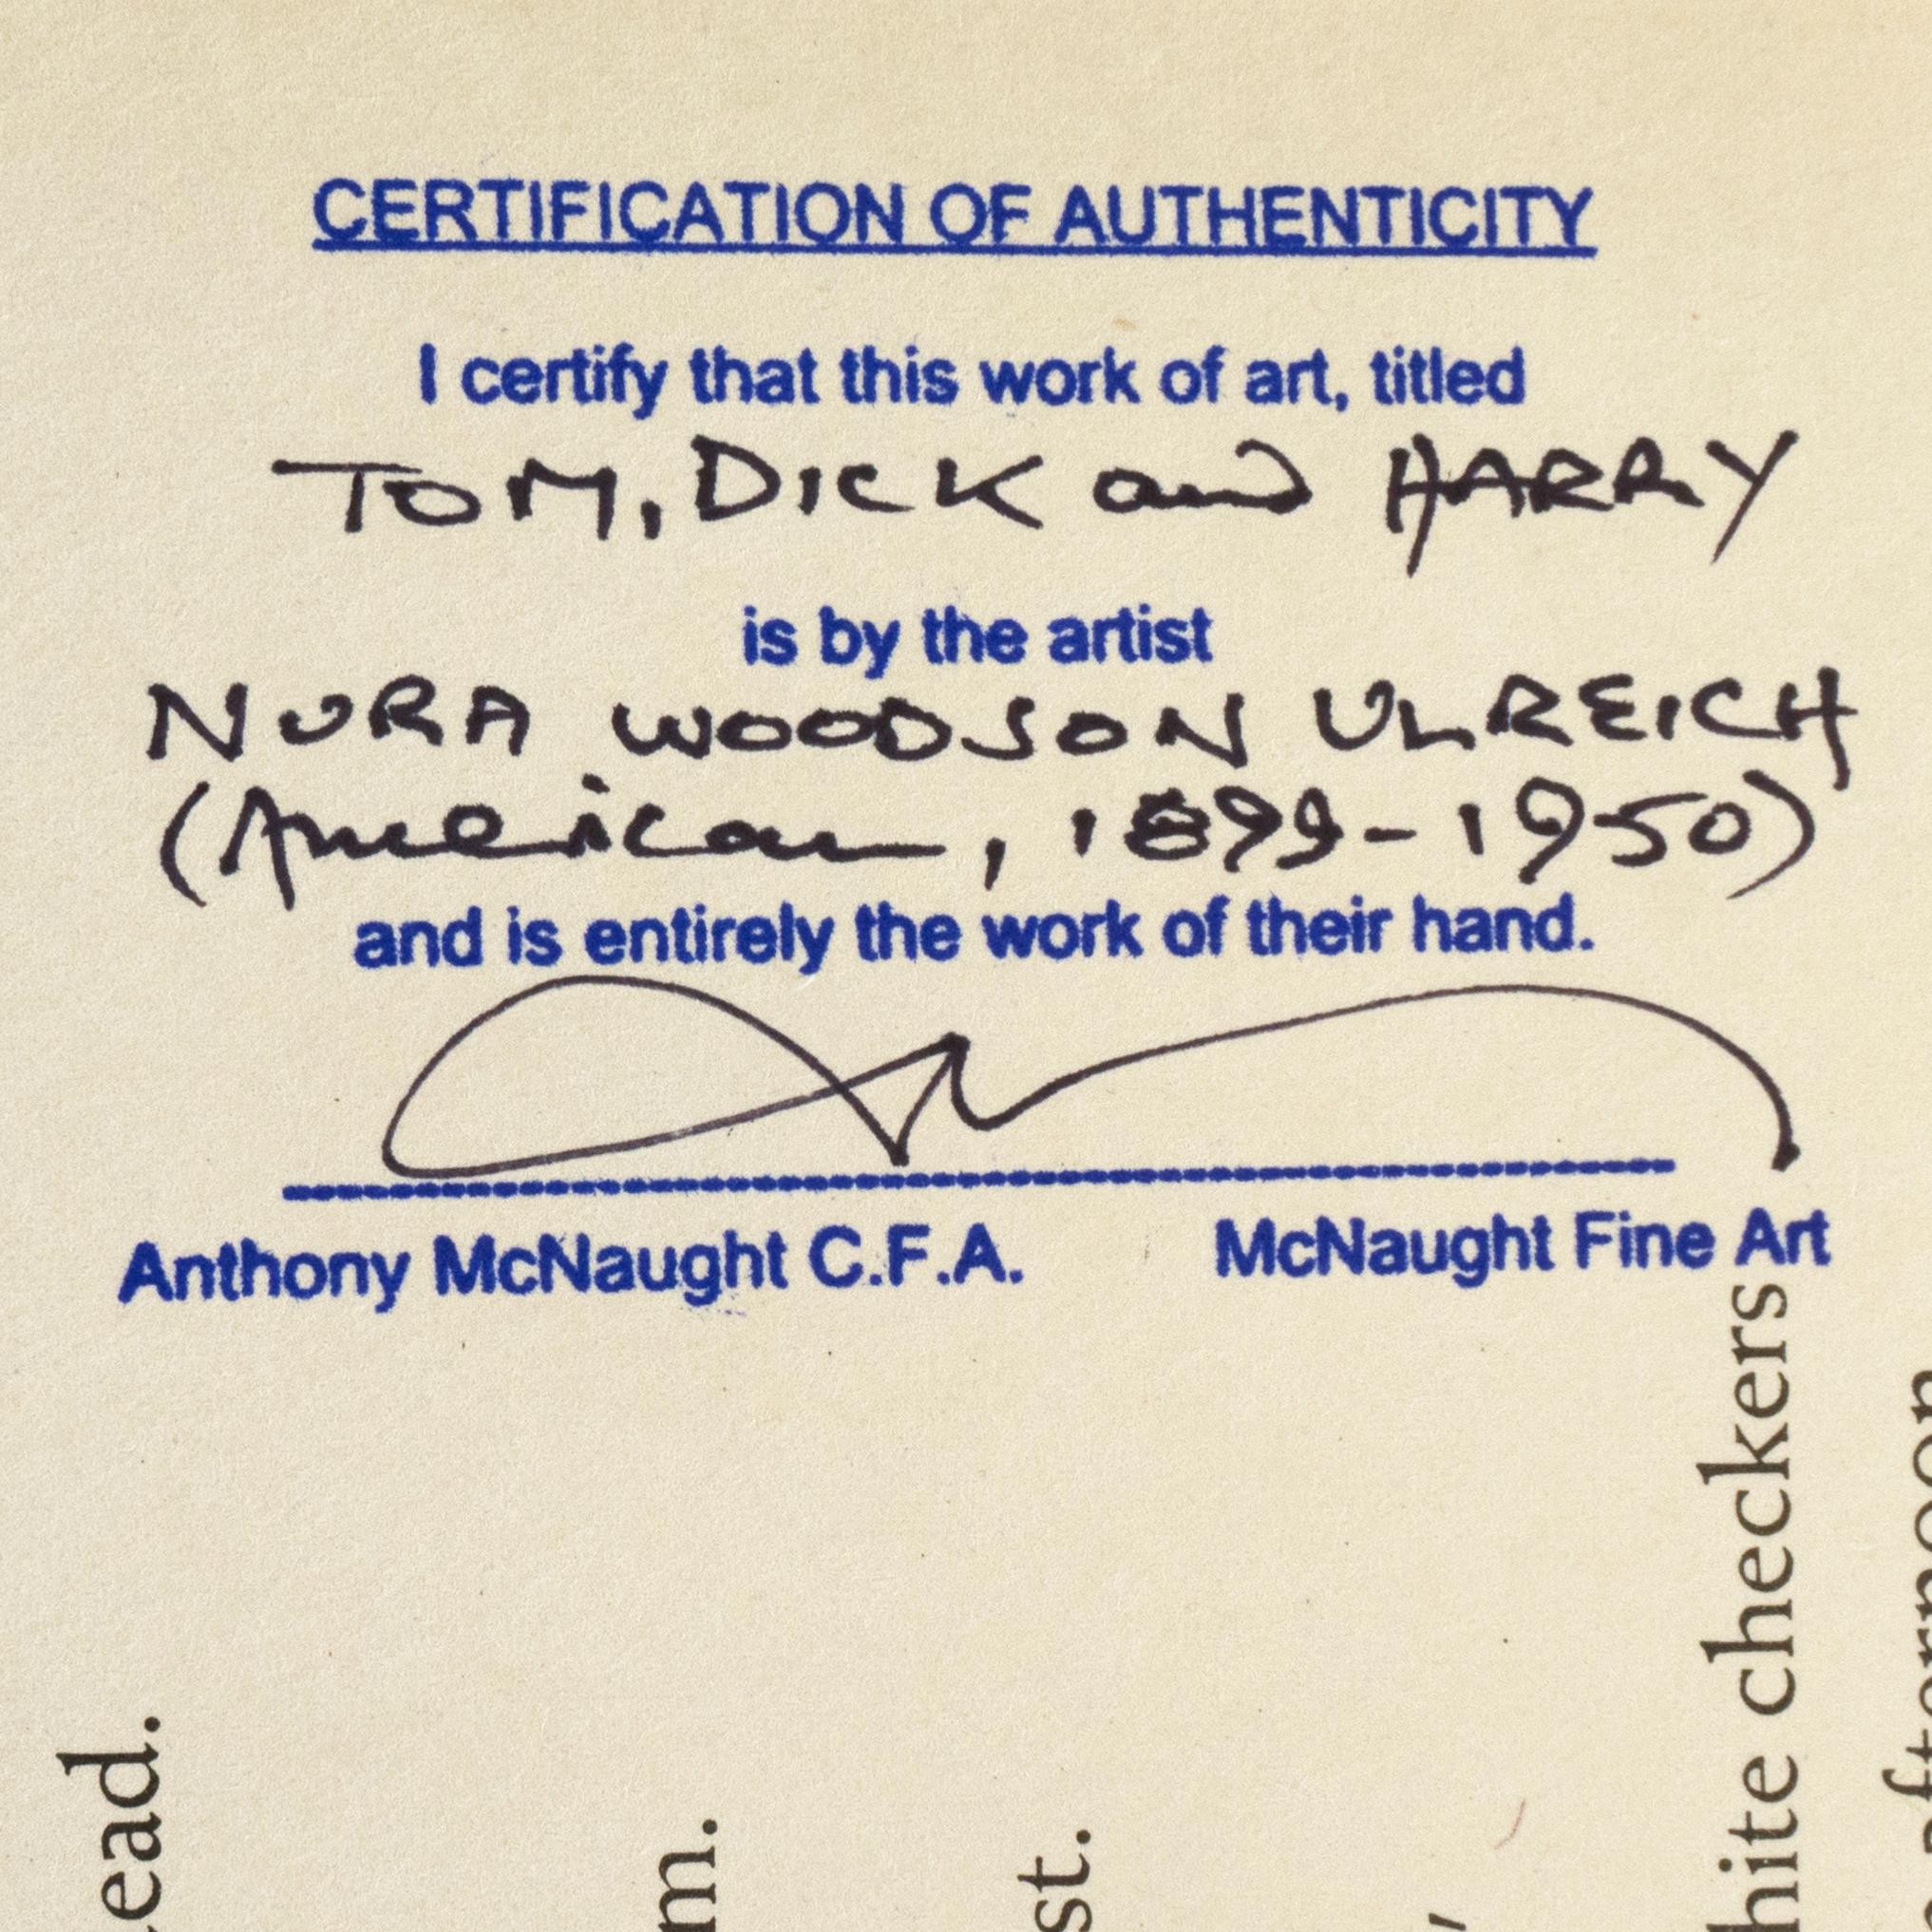 CERTIFICATION OF AUTHENTICITY
I certify that this work of art, titled
TOM, DICK and HARRY
is by the artist
NURA WOODSON ULREICH
(American, 1899-1950)
and is entirely the work of their hand.
Anthony McNaught C.F.A. McNaught Fine Art
m.
st.
checkers